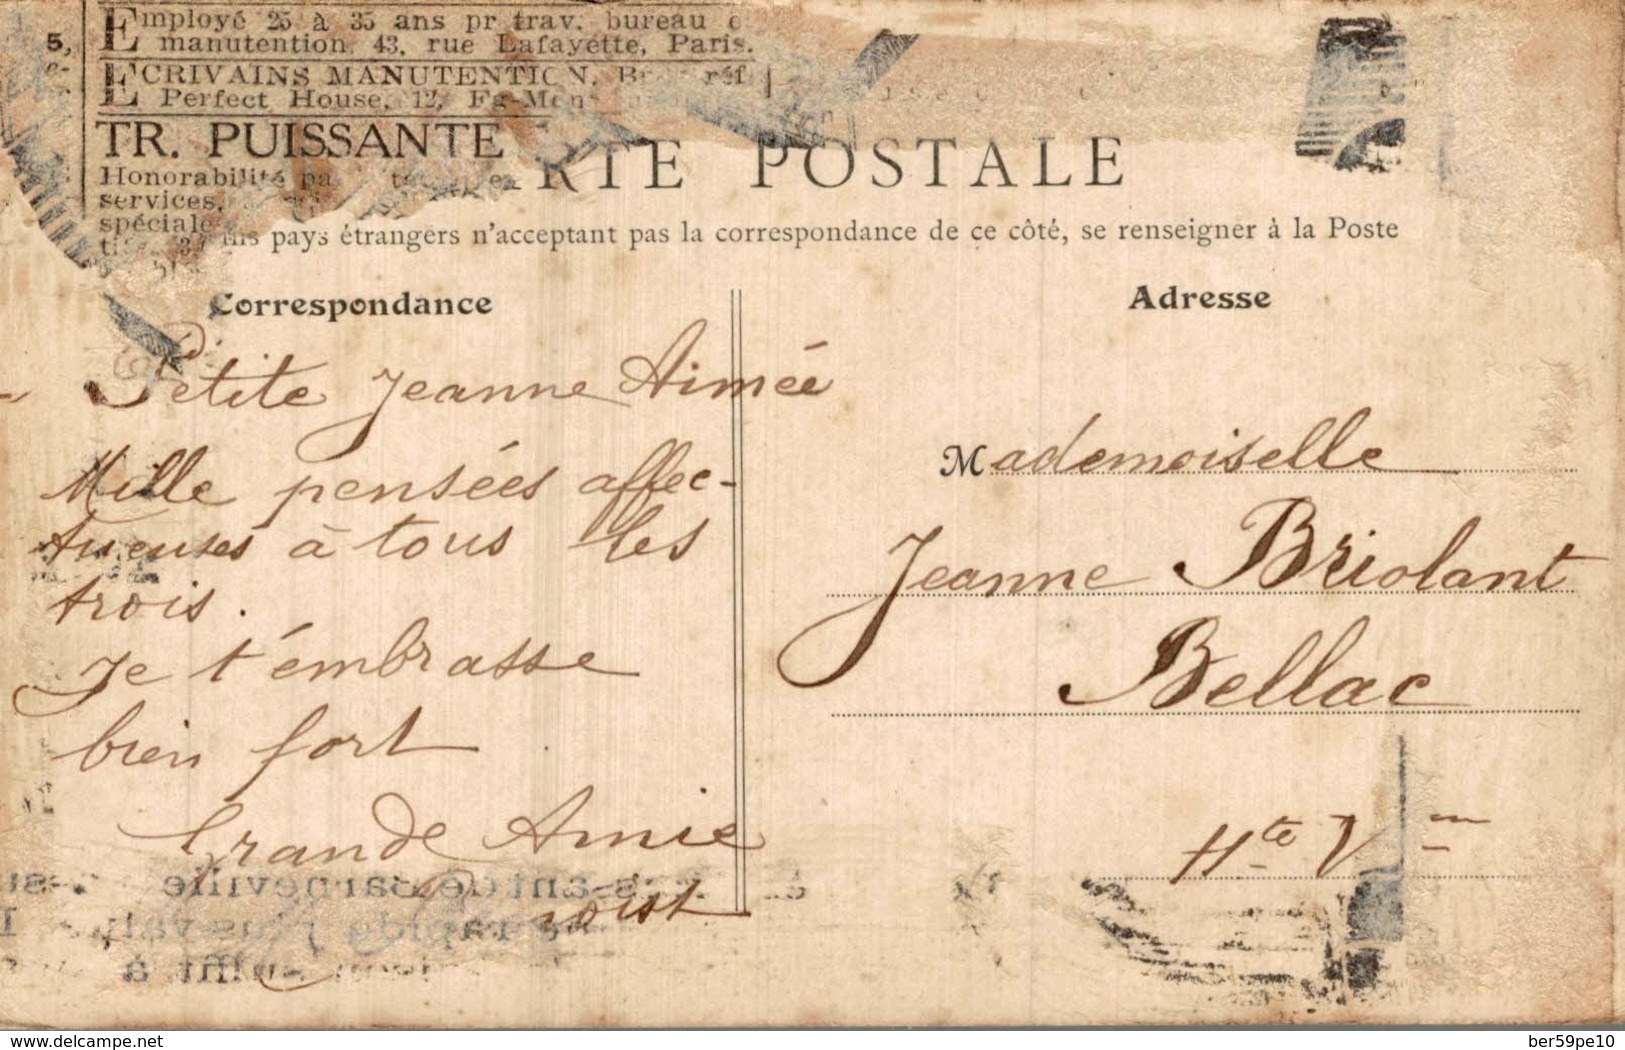 Employé 25 à 35 ans pr trav. bureau
5, manutention, 43, rue Lafayette, Paris.
ECRIVAINS MANUTENTION. réf
Perfect House, 12, Fg-Mon
TR. PUISSANTE
RTE POSTALE
Honorabilité
services.
spéciale
pays étrangers n'acceptant pas la correspondance de ce côté, se renseigner à la Poste
Correspondance
Petite Jeanne Aimée
Mille pensées affec-
tueuses à tous les
trois.
Je t'embrasse
bien fort
Grande Amie
Benoist
Adresse
Mademoiselle
Jeanne Briolant
Bellac
Hte Vne
delcampe.net
ber59pe10